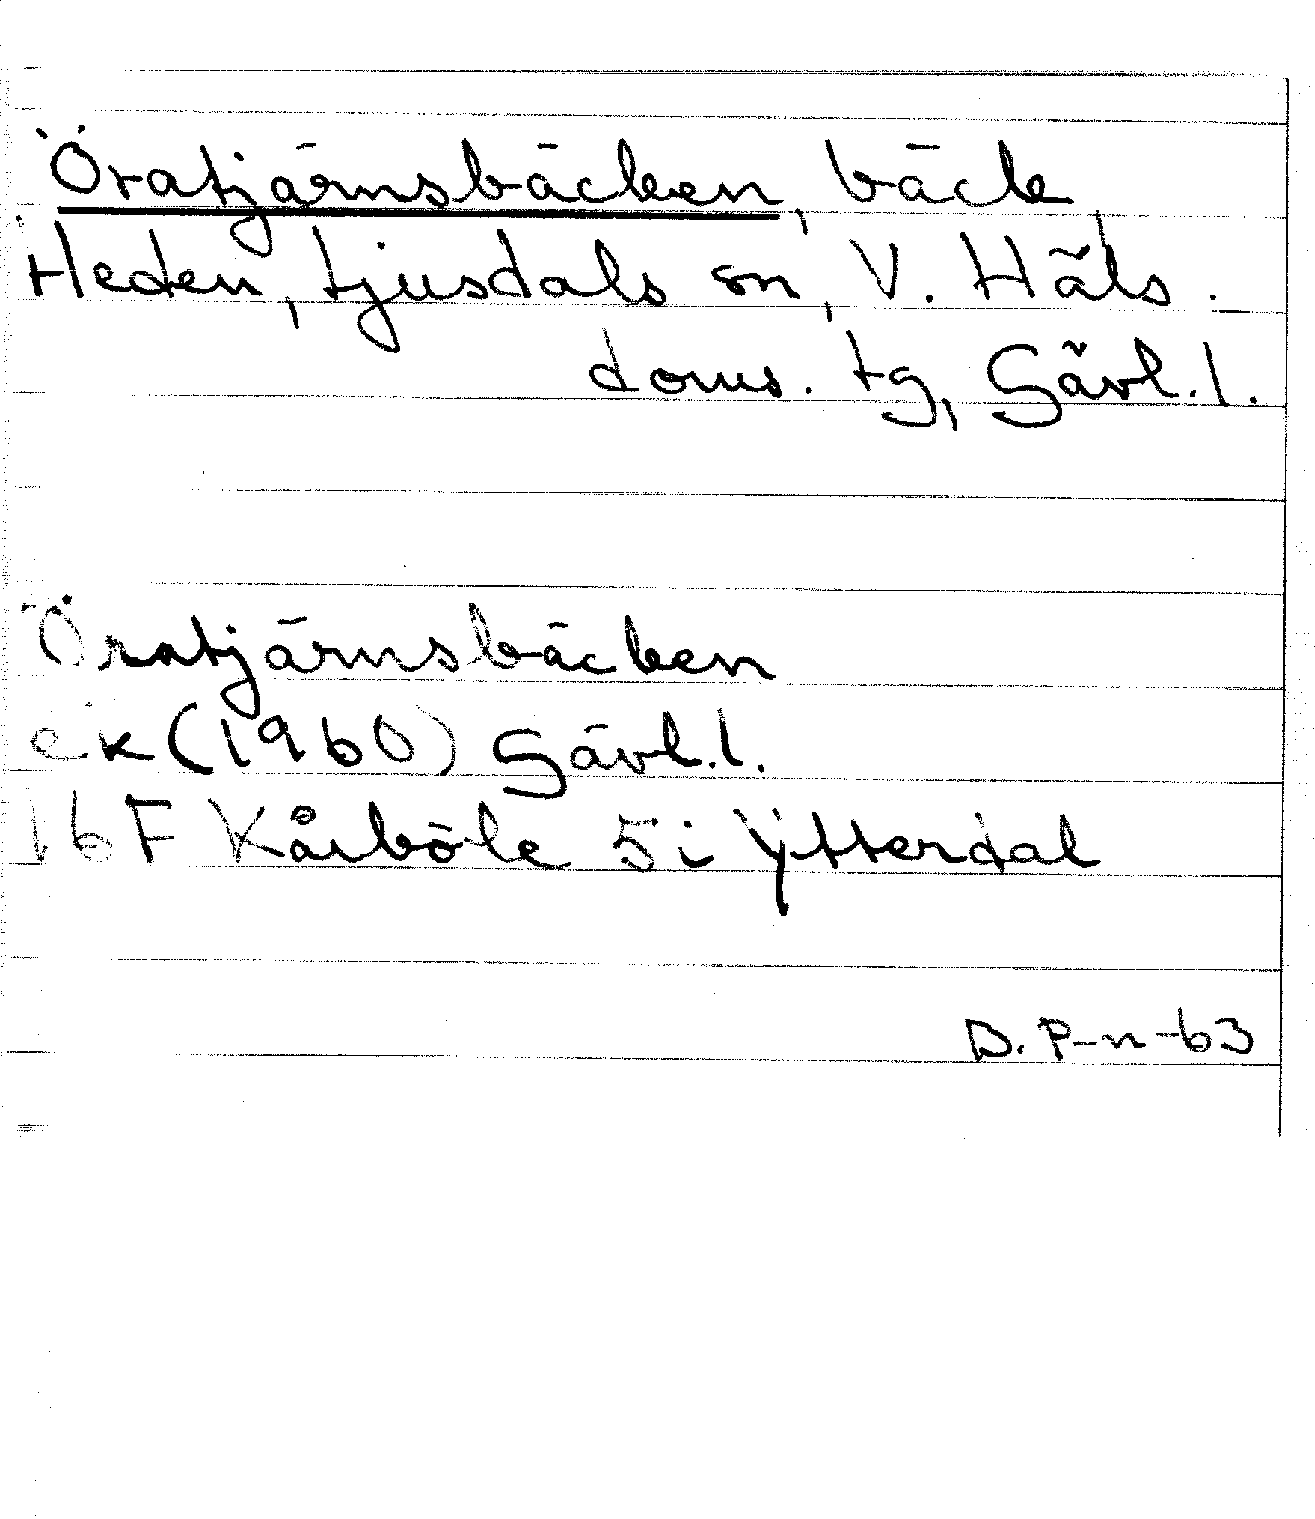 Öratjärnsbäcken, bäck,
Heden, Ljusdals sn, V. Häls.
doms. tg, Gävl. l.
Öratjärnsbäcken
ek (1960) Gävl. l.
16F Kårböle 5i Ytterdal
D. P-n -63